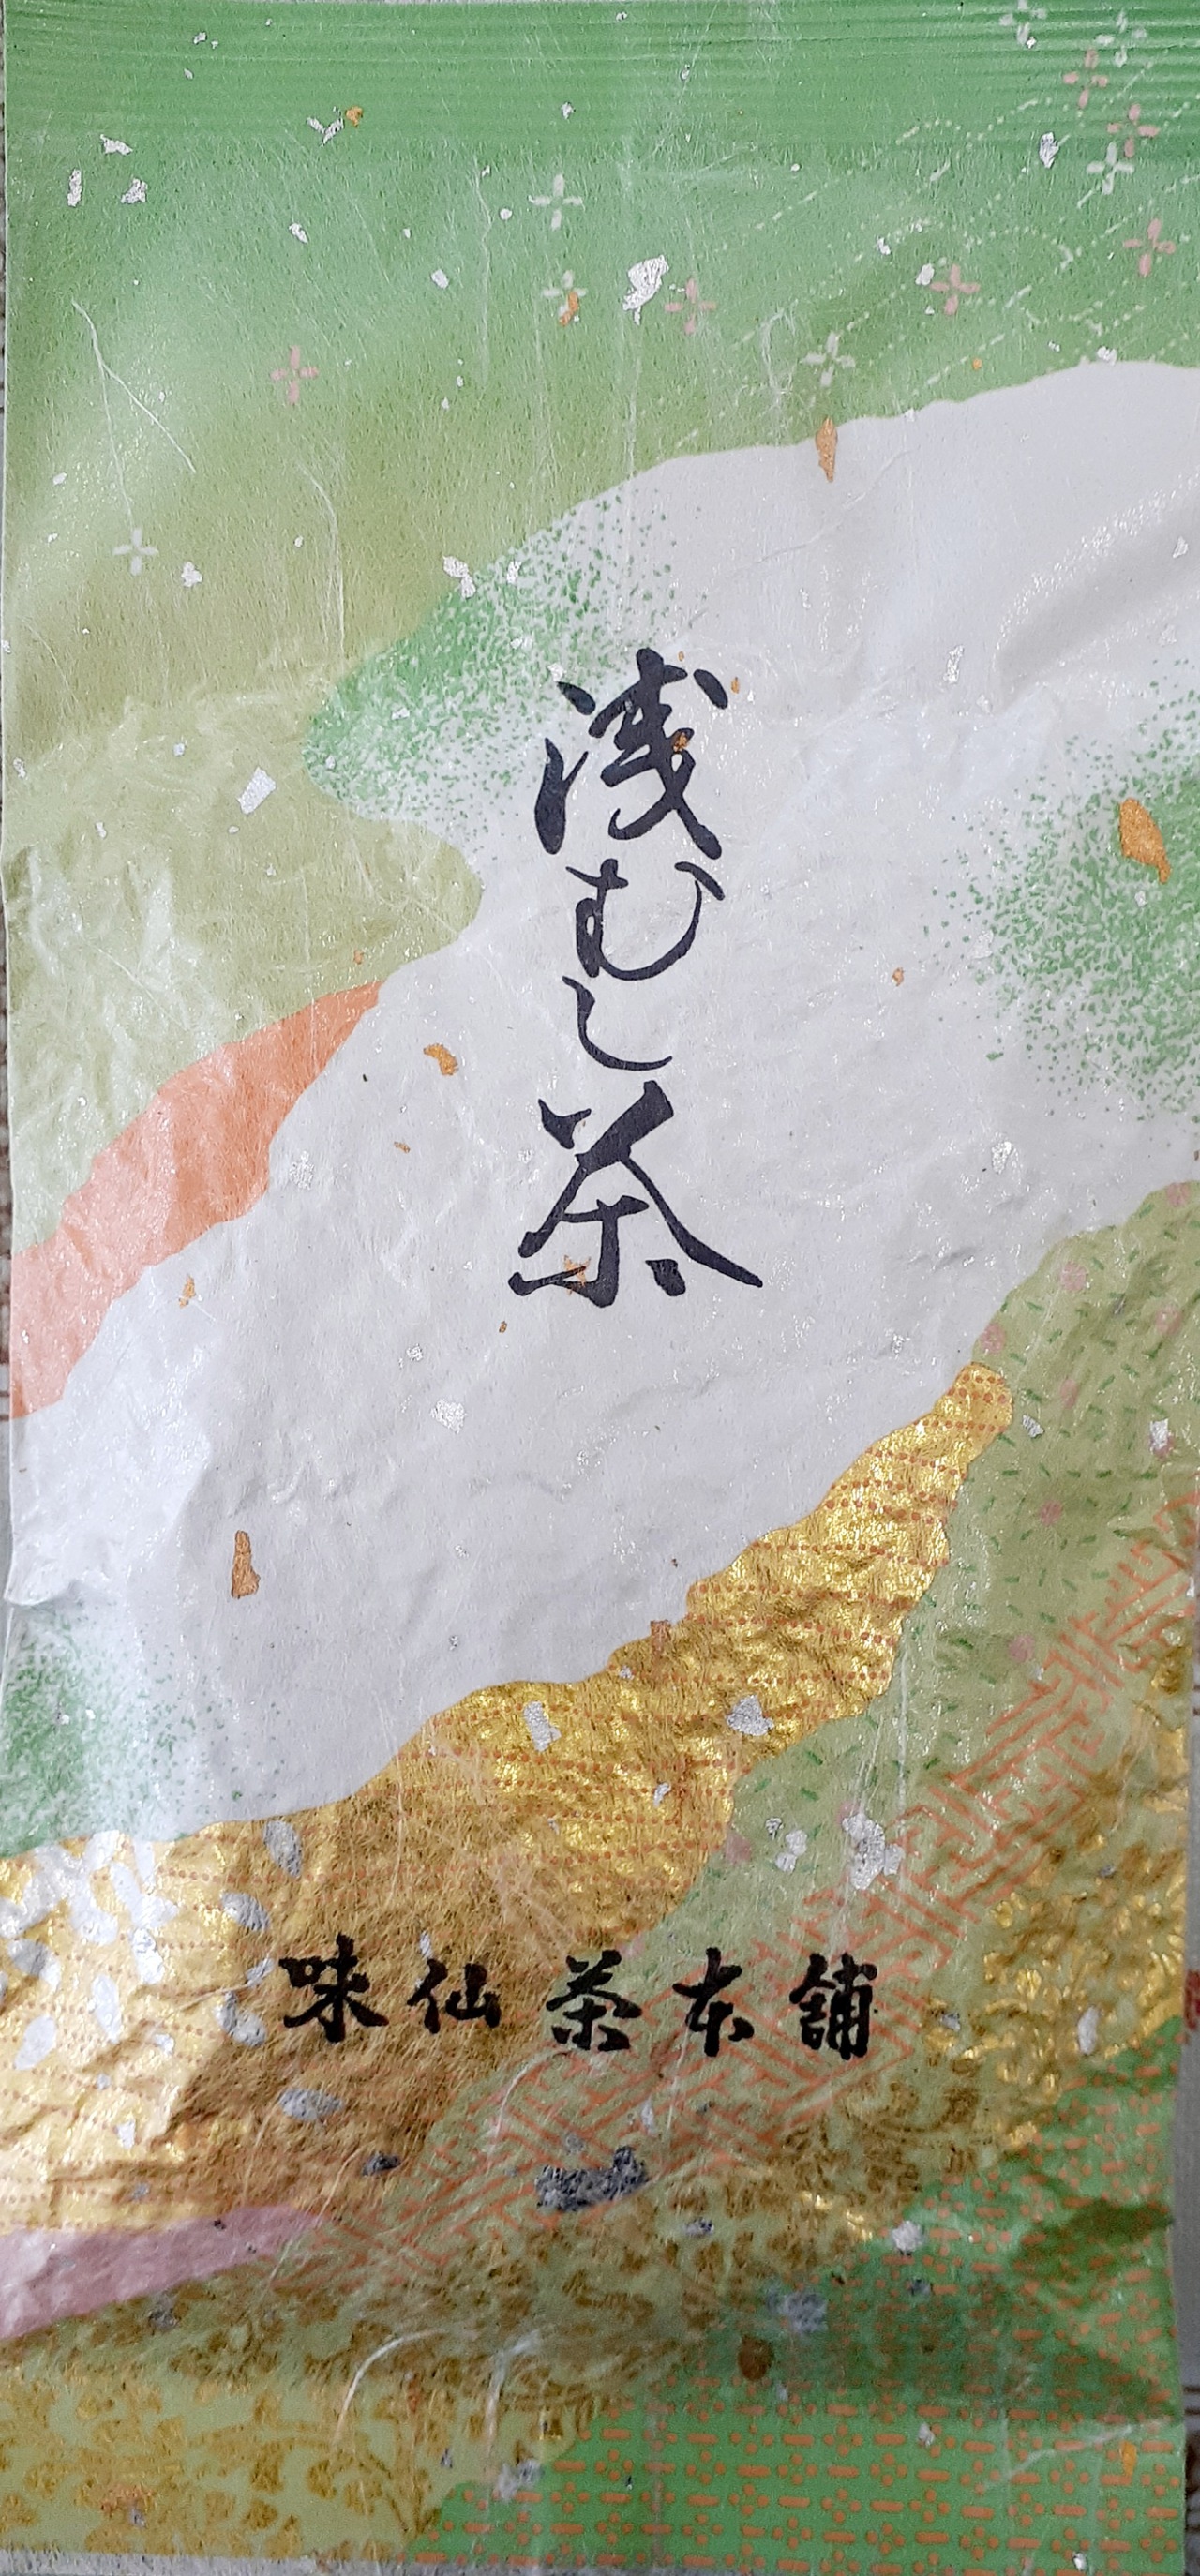 浅むし茶
味仙茶本舗